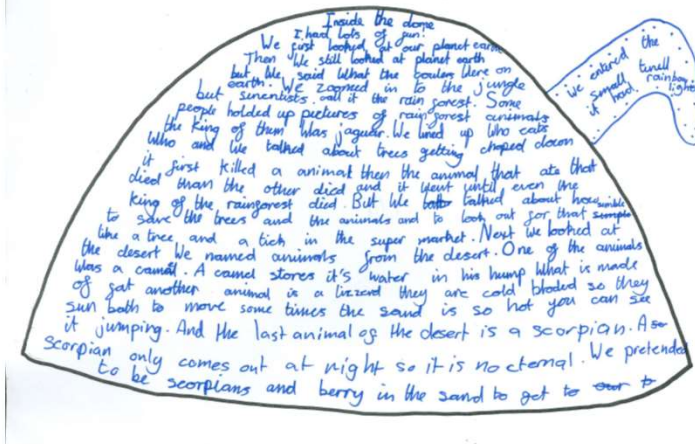 Inside the dome
I had lots of fun.
We first looked at our planet earth
Then we still looked at planet earth
but we said what the coulers were on
earth. We zoomed in to the jungle
but sinentists call it the rain forest. Some
people holded up pictures of rainforest animals
the king of them was jaguar. We lined up who eats
who and we talked about trees getting choped down
it first killed a animal then the animal that ate that
died than the other died and it went until even the
king of the rainforest died. But we talked about how
to save the trees and the animals and to look out for that
like a tree and a tick in the super market. Next we looked at
the desert we named animals from the desert. One of the animals
was a camel. A camel stores it's water in his hump what is made
of fat another animal is a lizzerd they are cold bloded so they
sun bath to move some times the sand is so hot you can see
it jumping. And the last animal of the desert is a scorpian. A
scorpian only comes out at night so it is nocternal. We pretended
to be scorpians and berry in the sand to get to
we entered the
small tunell
it had rainbow
lights